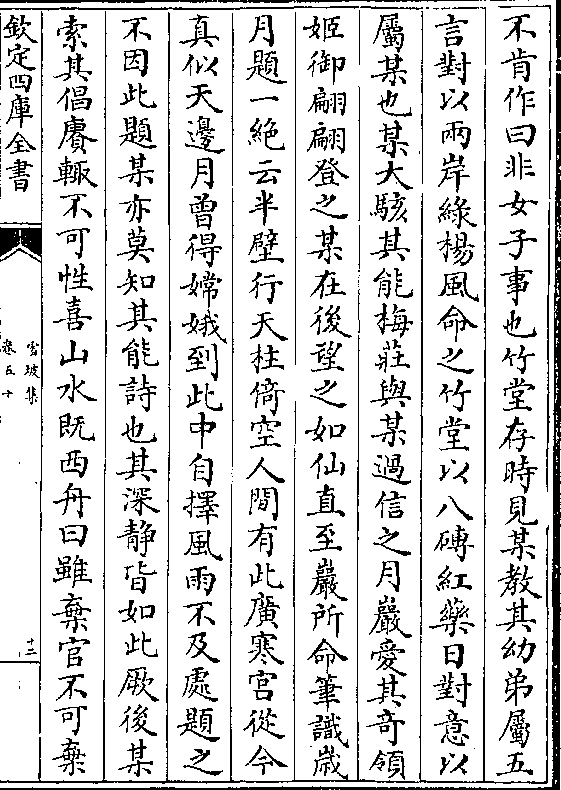 不肯作曰非女子事也竹堂存時見某教其幼弟屬五
言對以兩岸綠楊風命之竹堂以八磚紅藥日對意以
屬某也某大駭其能梅莊與某過信之月巖愛其奇領
姬御翩翩登之某在後望之如仙直至巖所命筆識歲
月題一絶云半壁行天柱倚空人間有此廣寒宫從今
真似天邊月曾得嫦娥到此中自擇風雨不及處題之
不因此題某亦莫知其能詩也其深靜皆如此厥後某
索其倡賡輙不可性喜山水既西舟曰雖棄官不可棄
欽定四庫全書
雪坡集
卷五十
十二